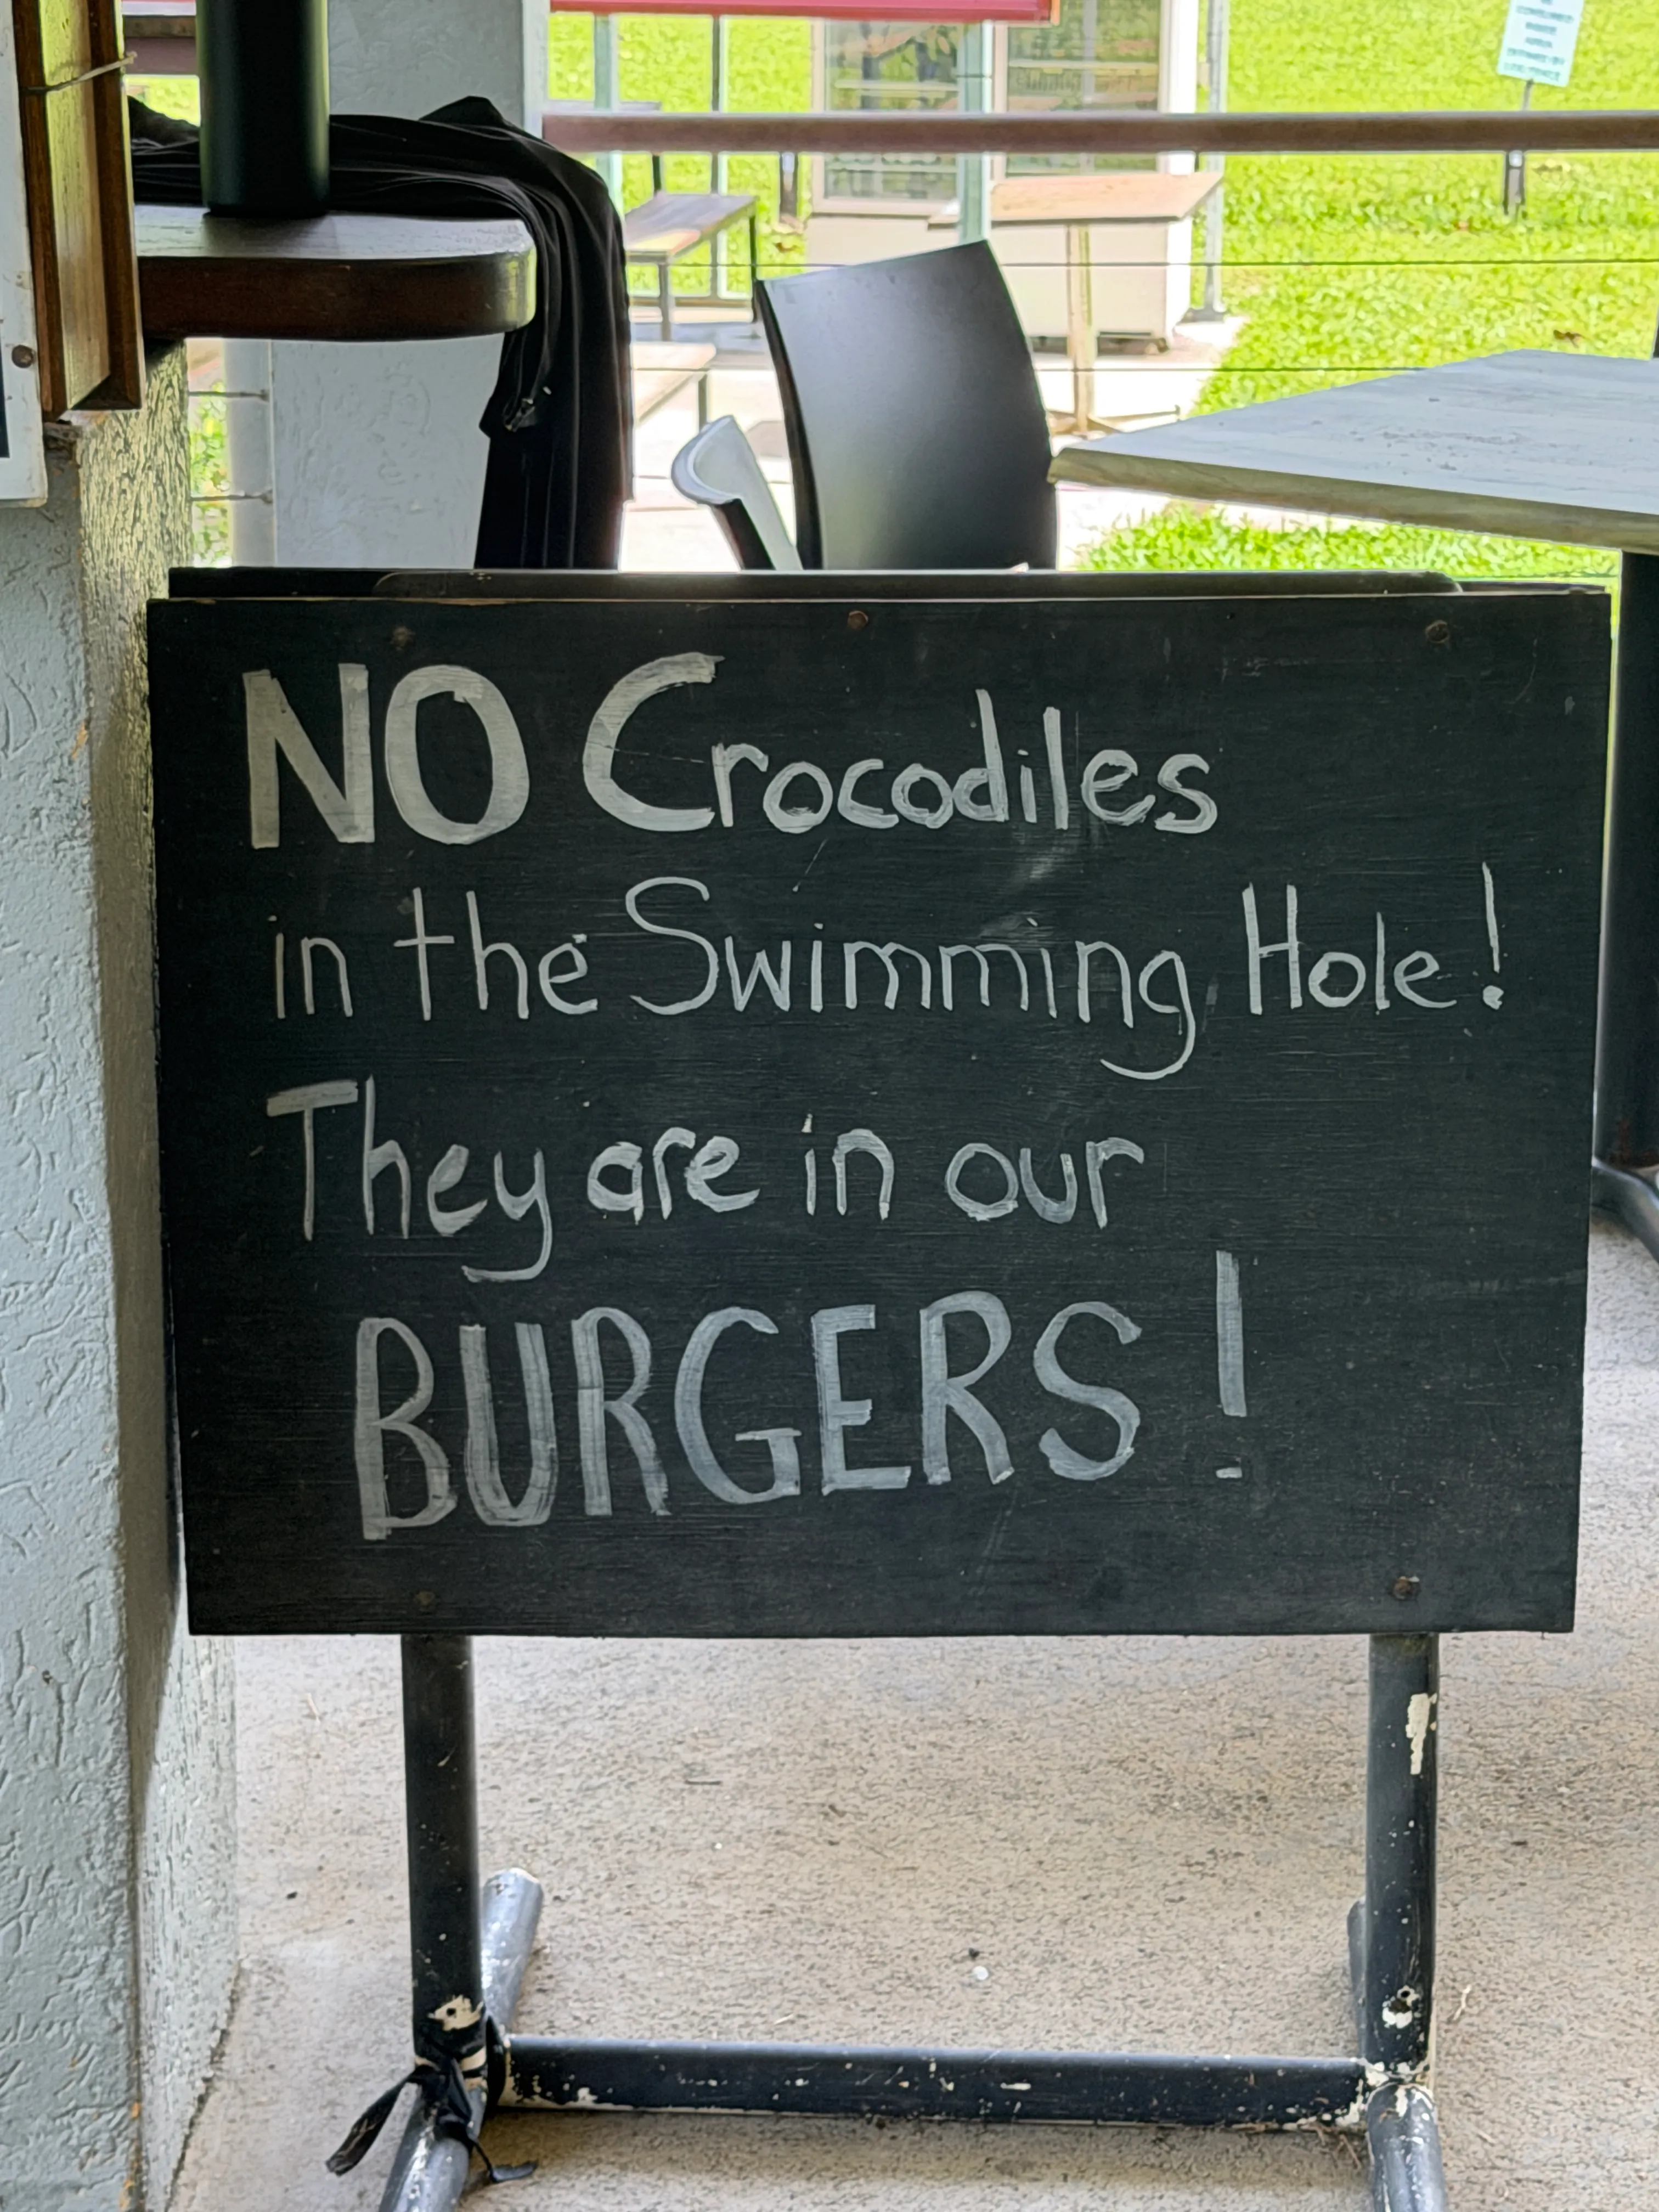 NO Crocodiles
in the Swimming Hole!
They are in our
BURGERS!